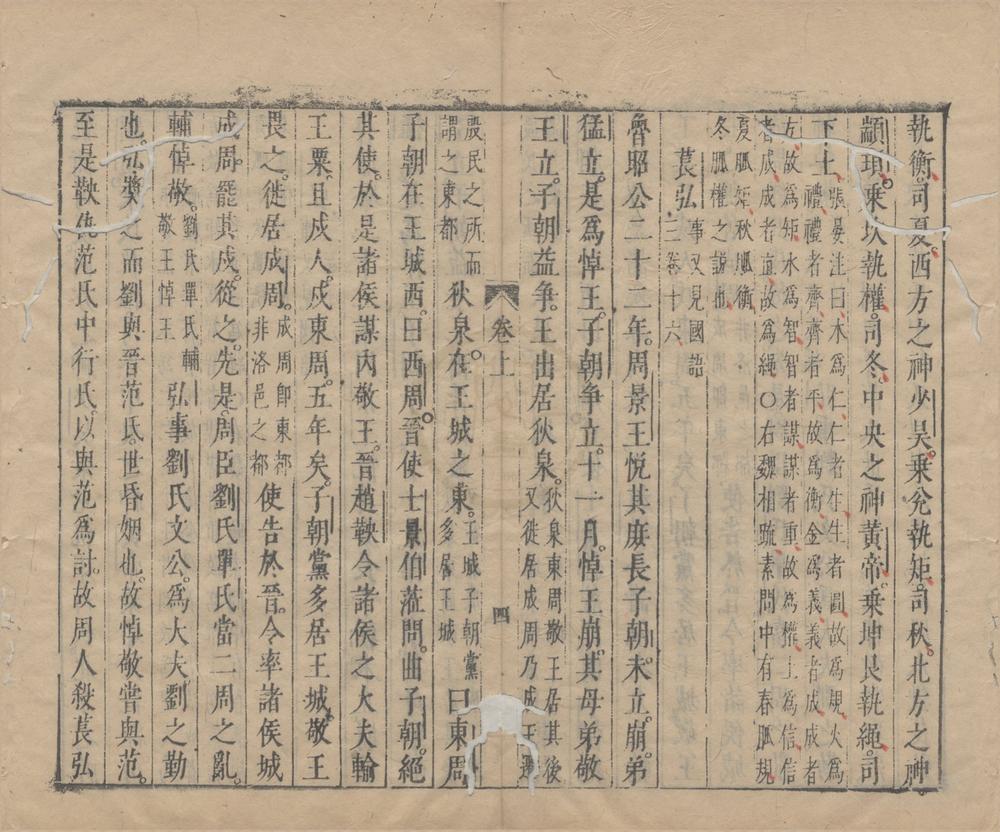 執衡。司夏。西方之神少昊。乘兌執矩。司秋。北方之神
顓頊。乘坎執權。司冬。中央之神黃帝。乘坤艮執繩。司
下土。
張晏注曰。木爲仁。仁者生。生者圓。故爲規。火爲
禮。禮者齊。齊者平。故爲衡。金爲義。義者成。成者
方。故爲矩。水爲智。智者謀。謀者重。故爲權。土爲信。信
者成。成者直。故爲繩。〇右魏相疏素問中有春脈規
夏脈矩秋脈衡
冬脈權之說也
萇弘
事又見國語
三卷十六
魯昭公二十二年。周景王悅其庶長子朝。未立。崩。弟
猛立。是爲悼王。子朝爭立。十一月。悼王崩。其母弟敬
王立。子朝益爭。王出居狄泉。
狄泉東周敬王居其後
又徙居成周乃成王遷
卷上
四
殷民之所而
謂之東都
狄泉。在王城之東。
王城子朝黨
多居王城
曰東周
子朝在王城西。曰西周。晉使士景伯蒞問。曲子朝。絕
其使。於是諸侯謀內敬王。晉趙鞅令諸侯之大夫輸
王粟。且戍人。戍東周。五年矣。子朝黨多居王城。敬王
畏之。徙居成周。
成周即東都
非洛邑之都
使告於晉。令率諸侯城
成周。罷其戍。從之。先是。周臣劉氏單氏當二周之亂。
輔悼敬。
劉氏單氏輔
敬王悼王
弘事劉氏文公。爲大夫。劉之勤
也。弘獎之。而劉與晉范氏。世昏姻也。故悼敬嘗與范。
至是鞅仇范氏中行氏。以與范爲討。故周人殺萇弘